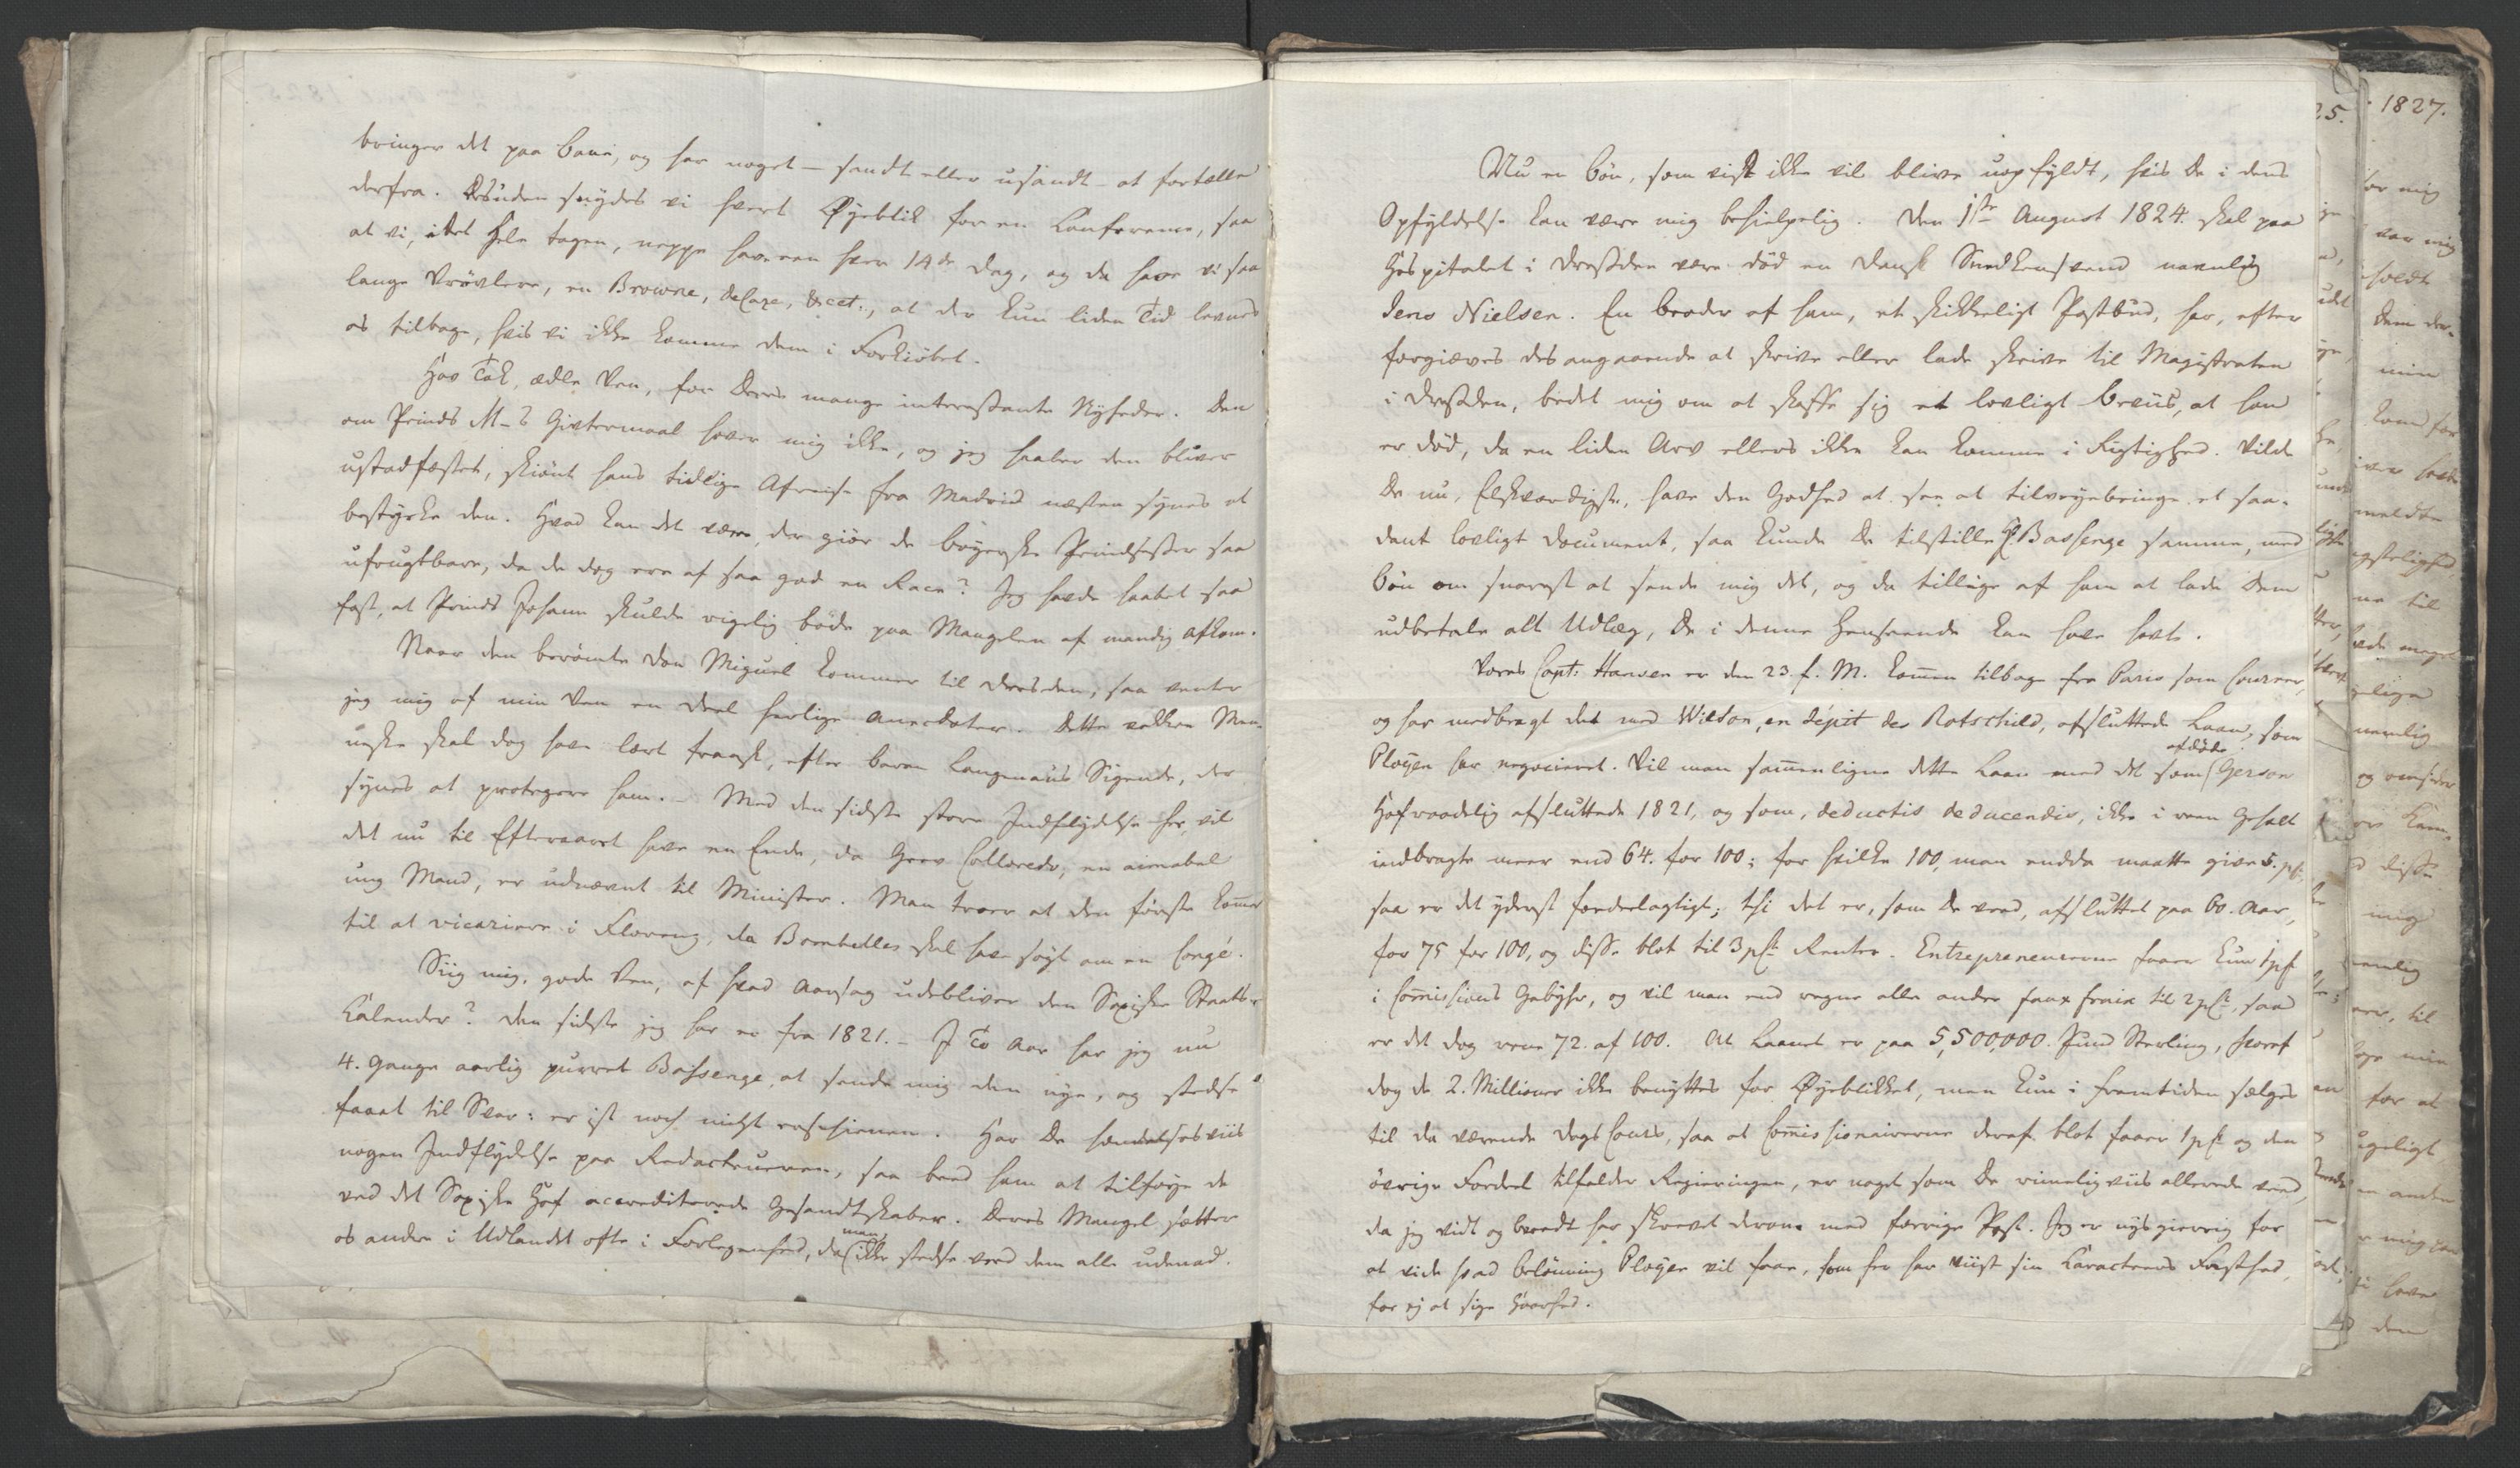 bringer det paa bane, og har noget – sandt eller usandt – at fortælle
derfra. Desuden snydes vi hvert Øyeblik for en Conference, saa
at vi, i det Hele tagen, neppe have een hver 14de Dag, og da have vi saa
lange Vrøvlere, en Browne, deCaze, &cet., at der kun liden Tid levnes
os tilbage, hvis vi ikke komme dem i Forkiöbet.
Hav Tak, ædle Ven, for Deres mange interessante Nyheder. Den
om Prinds M–s Givtermaal hover mig ikke, og jeg haaber den bliver
ustadfæstet, skiönt hans tidlige Afreise fra Madrid næsten synes at
bestyrke den. Hvad kan det være, der giör de bayerske Prindsesser saa
ufrugtbare, da de dog ere af saa god en Race? Jeg havde haabet saa
fast, at Prinds Johann skulde rigelig böde paa Mangelen af mandig Afkom.
Naar den berömte Don Miguel kommer til Dresden, saa venter
jeg mig af min Ven en Deel herlige Anecdoter. Dette vakkre Men-
neske skal dog have lært fransk, efter Baron Langenaus Sigende, der
synes at protegere ham. – Med den sidste store Indflydelse her, vil
det nu til Efteraaret have en Ende, da Grev Colloredo, en aimabel
ung Mand, er udnævnt til Minister. Man troer at den förste kommer
til at vicariere i Florenz, da Bombelles skal have søgt om en Congé.
Siig mig, gode Ven, af hvad Aarsag udebliver den Saxiske Staats-
Calender? Den sidste jeg har er fra 1821. – I To Aar har jeg nu
4. Gange aarlig purret Bassenge, at sende mig den nye, og stedse
faaet til Svar: er ist noch nicht erschienen. Har De hændelsesviis
nogen Indflydelse paa Redacteuren, saa beed ham at tilføye de
ved det Saxiske Hof accrediterede Gesandtskaber. Deres Mangel sætter
os andre i Udlandet ofte i Forlegenhed, da man ikke stedse veed dem alle udenad.
Nu en Bön, som vist ikke vil blive uopfyldt, hvis De i dens
Opfyldelse kan være mig behielpelig. Den 1ste August 1824 skal paa
Hospitalet i Dresden være död en dansk Snedkersvend navnlig
Jens Nielsen. En Broder af ham, et skikkeligt Postbud, har, efter
forgiæves desangaaende at skrive eller lade skrive til Magistraten
i Dresden, bedet mig om at skaffe sig et lovligt Beviis, at han
er död, da en liden Arv ellers ikke kan komme i Rigtighed. Vilde
De nu, Elskværdigste, have den Godhed at see at tilveyebringe et saa-
dant lovligt Document, saa kunde De tilstille Hr. Bassenge samme, med
Bön om snarest at sende mig det, og da tillige af ham at lade Dem
udbetale alt Udlæg, De i denne Henseende kan have havt.
Vores Capt: Hansen er den 23. f. M. kommen tilbage fra Paris som Coureer,
og har medbragt det med Wilson, en dépit des Rotschild, afsluttede Laan, som
Ployen har negocieret. Vil man sammenligne dette Laan med det som afdöde Gerson
Hofraadelig afsluttede 1821, og som, deductis deducendis, ikke i reen Gehalt
indbragte meer end 64. for 100; for hvilke 100, man endda maatte give 5. pCt,
saa er det yderst fordeelagtigt; thi det er, som De veed, afsluttet paa 60. Aar,
for 75 for 100, og disse blot til 3 pCt. Renter. Entrepreneurerne faaer kun 1 pCt
i Commissions Gebyhr, og vil man end regne alle andre faux fraix til 2 pCt, saa
er det dog rene 72. af 100. At Laanet er paa 5,500,000. Pund Sterling, hvoraf
dog de 2. Millioner ikke benyttes for Øyeblikket, men kun i Fremtiden sælges
til da værende Dags Cours, saa at Commissionairerne deraf blot faaer 1 pCt og den
övrige Fordeel tilfalder Regieringen, er noget som De rimeligviis allerede veed,
da jeg vidt og breedt har skrevet derom med forrige Post. Jeg er nysgierrig for
at vide hvad Belönning Ployen vil faae, som her har viist sin Caracteers Fasthed,
for ej at sige Haarhed.
25.
1827.
for mig
var mig
min
meldte
ne til
nemlig
mig
for at
den